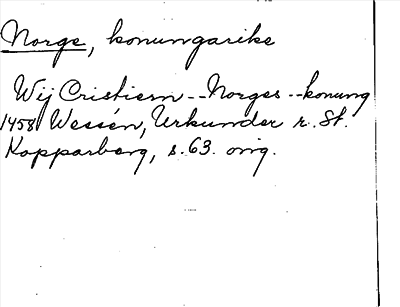 Norge, konungarike
Wij Cristiern -- Norges -- konung
1458 Wessén, Urkunder r. St.
Kopparberg, s. 63. orig.